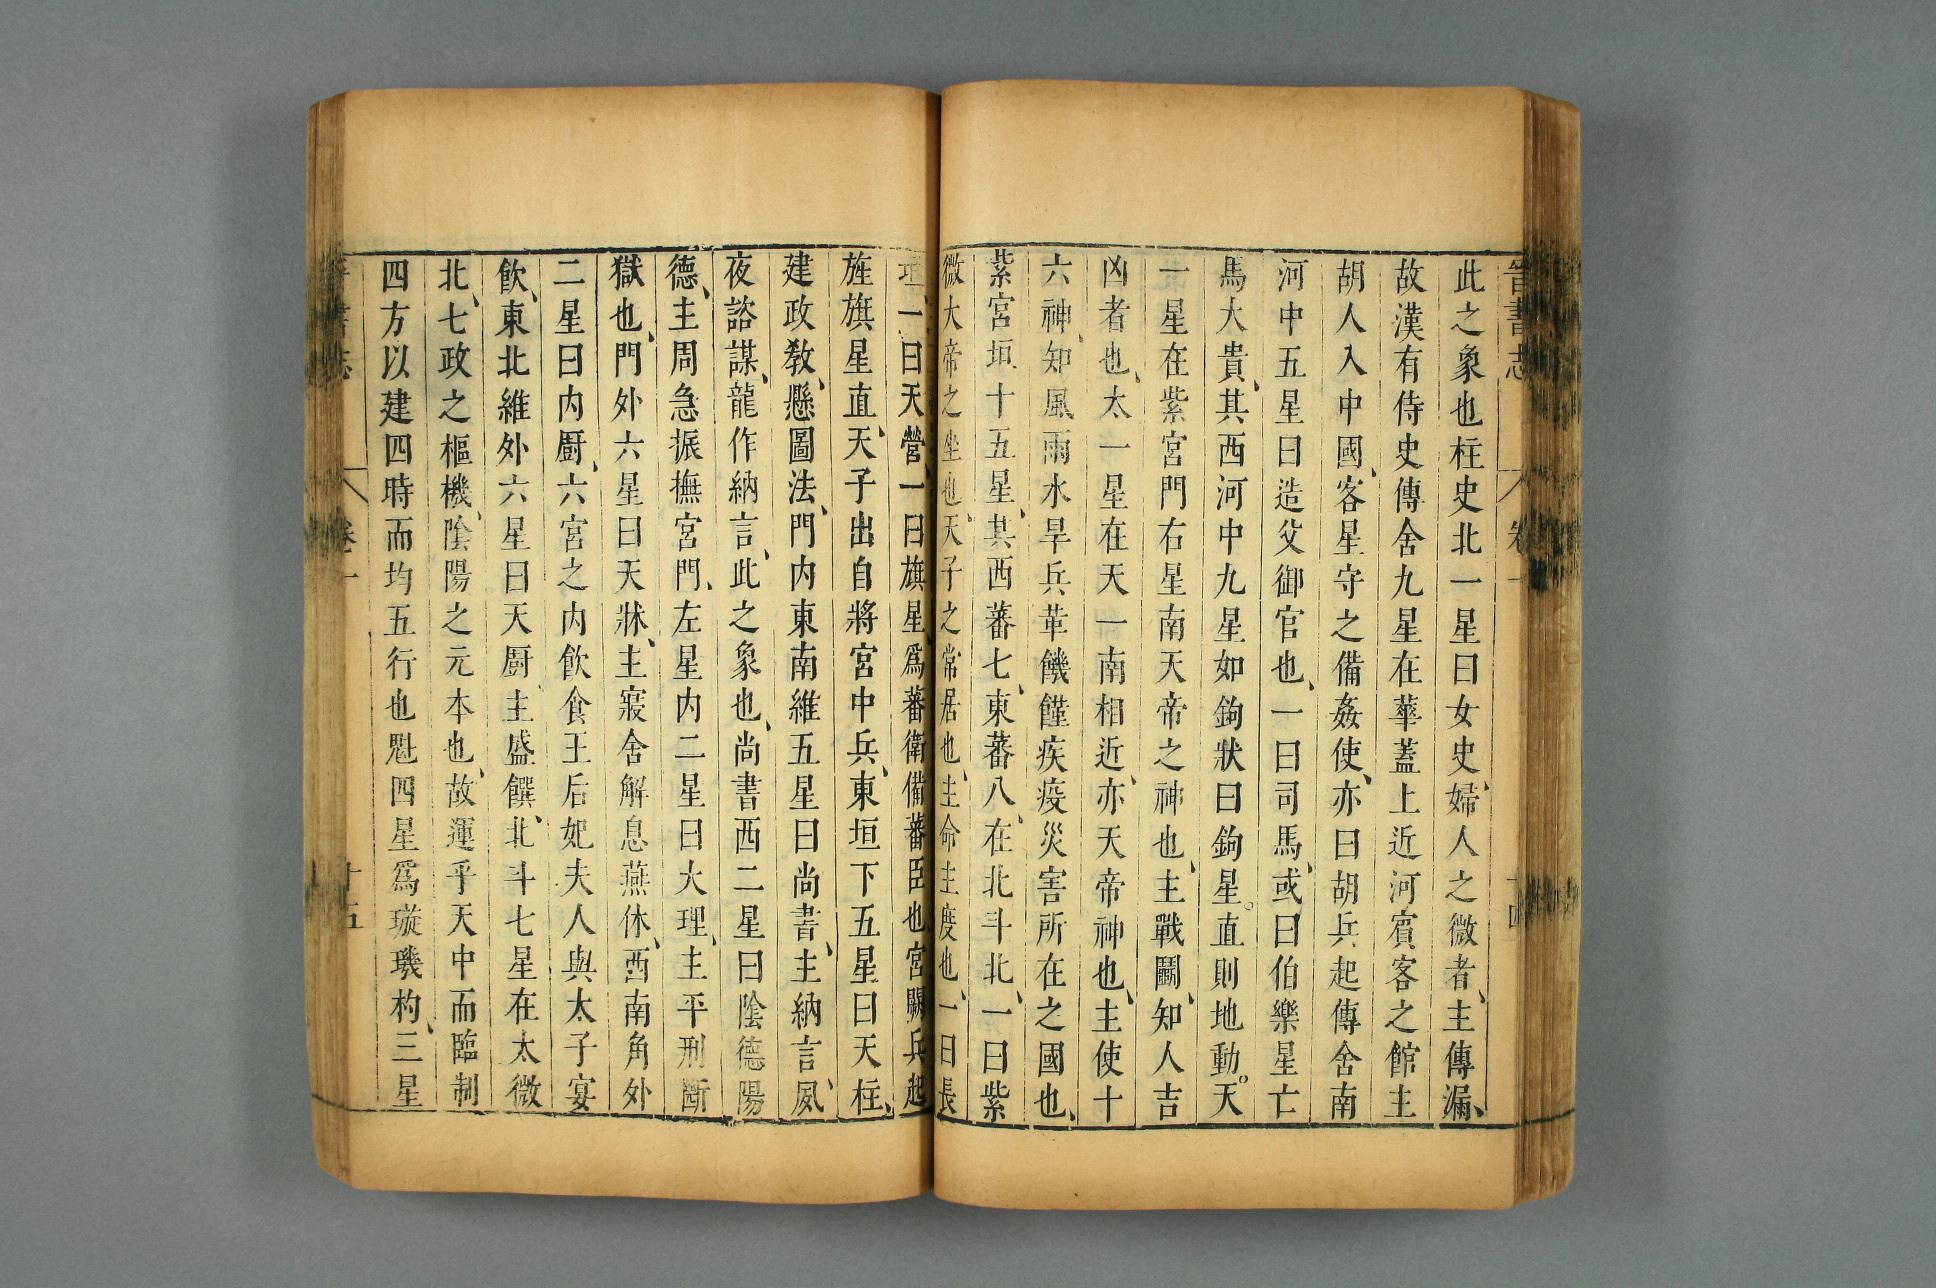 晉書志 卷一 十四
此之象也柱史北一星曰女史、婦人之微者、主傳漏、
故漢有侍史傳舍九星在華蓋上近河賓客之館主
胡人入中國、客星守之備姦使、亦曰胡兵起傳舍南
河中五星曰造父御官也、一曰司馬、或曰伯樂星亡
馬大貴、其西河中九星如鉤狀曰鉤星。直則地動。天
一星在紫宮門右星南天帝之神也、主戰鬬、知人吉
凶者也、太一星在天一南相近、亦天帝神也、主使十
六神、知風雨水旱兵革饑饉疾疫災害所在之國也、
紫宮垣十五星、其西蕃七、東蕃八、在北斗北、一曰紫
微大帝之坐也、天子之常居也、主命主度也、一曰長
垣、一曰天營、一曰旗星、爲蕃衛備蕃臣也宮闕兵起
旌旗星直、天子出自將宮中兵、東垣下五星曰天柱、
建政教、懸圖法、門内東南維五星曰尚書、主納言、夙
夜諮謀、龍作納言、此之象也、尚書西二星曰陰德陽
德、主周急振撫宮門、左星内二星曰大理、主平刑斷
獄也、門外六星曰天牀、主寢舍解息燕休、西南角外
二星曰内厨、六宮之内飲食王后妃夫人與太子宴
飲、東北維外六星曰天厨、主盛饌、北斗七星在太微
北、七政之樞機、陰陽之元本也、故運乎天中而臨制
四方以建四時而均五行也魁四星爲璇璣杓、三星
書志 卷一 十五